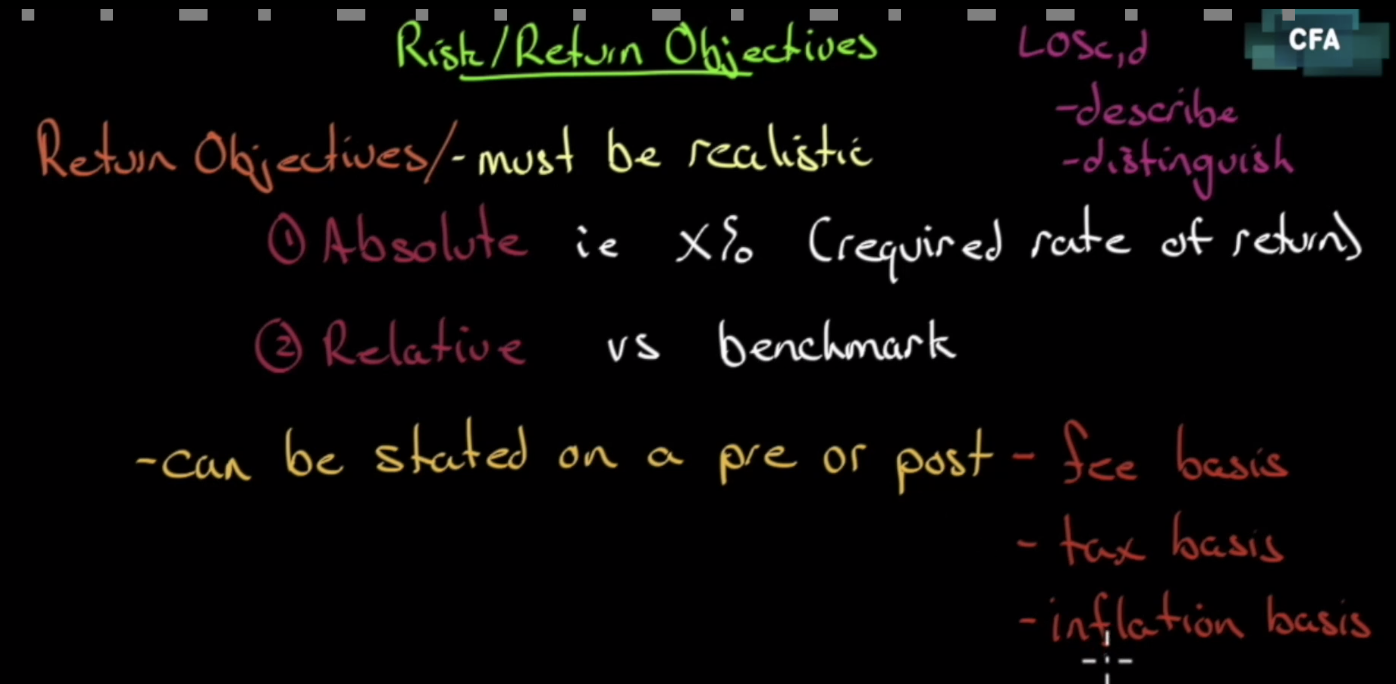 Risk/Return Objectives
LOSc,d
CFA
-describe
-distinguish
Return Objectives/-must be realistic
① Absolute ie X% (required rate of return)
② Relative vs benchmark
-can be stated on a pre or post - fee basis
- tax basis
- inflation basis